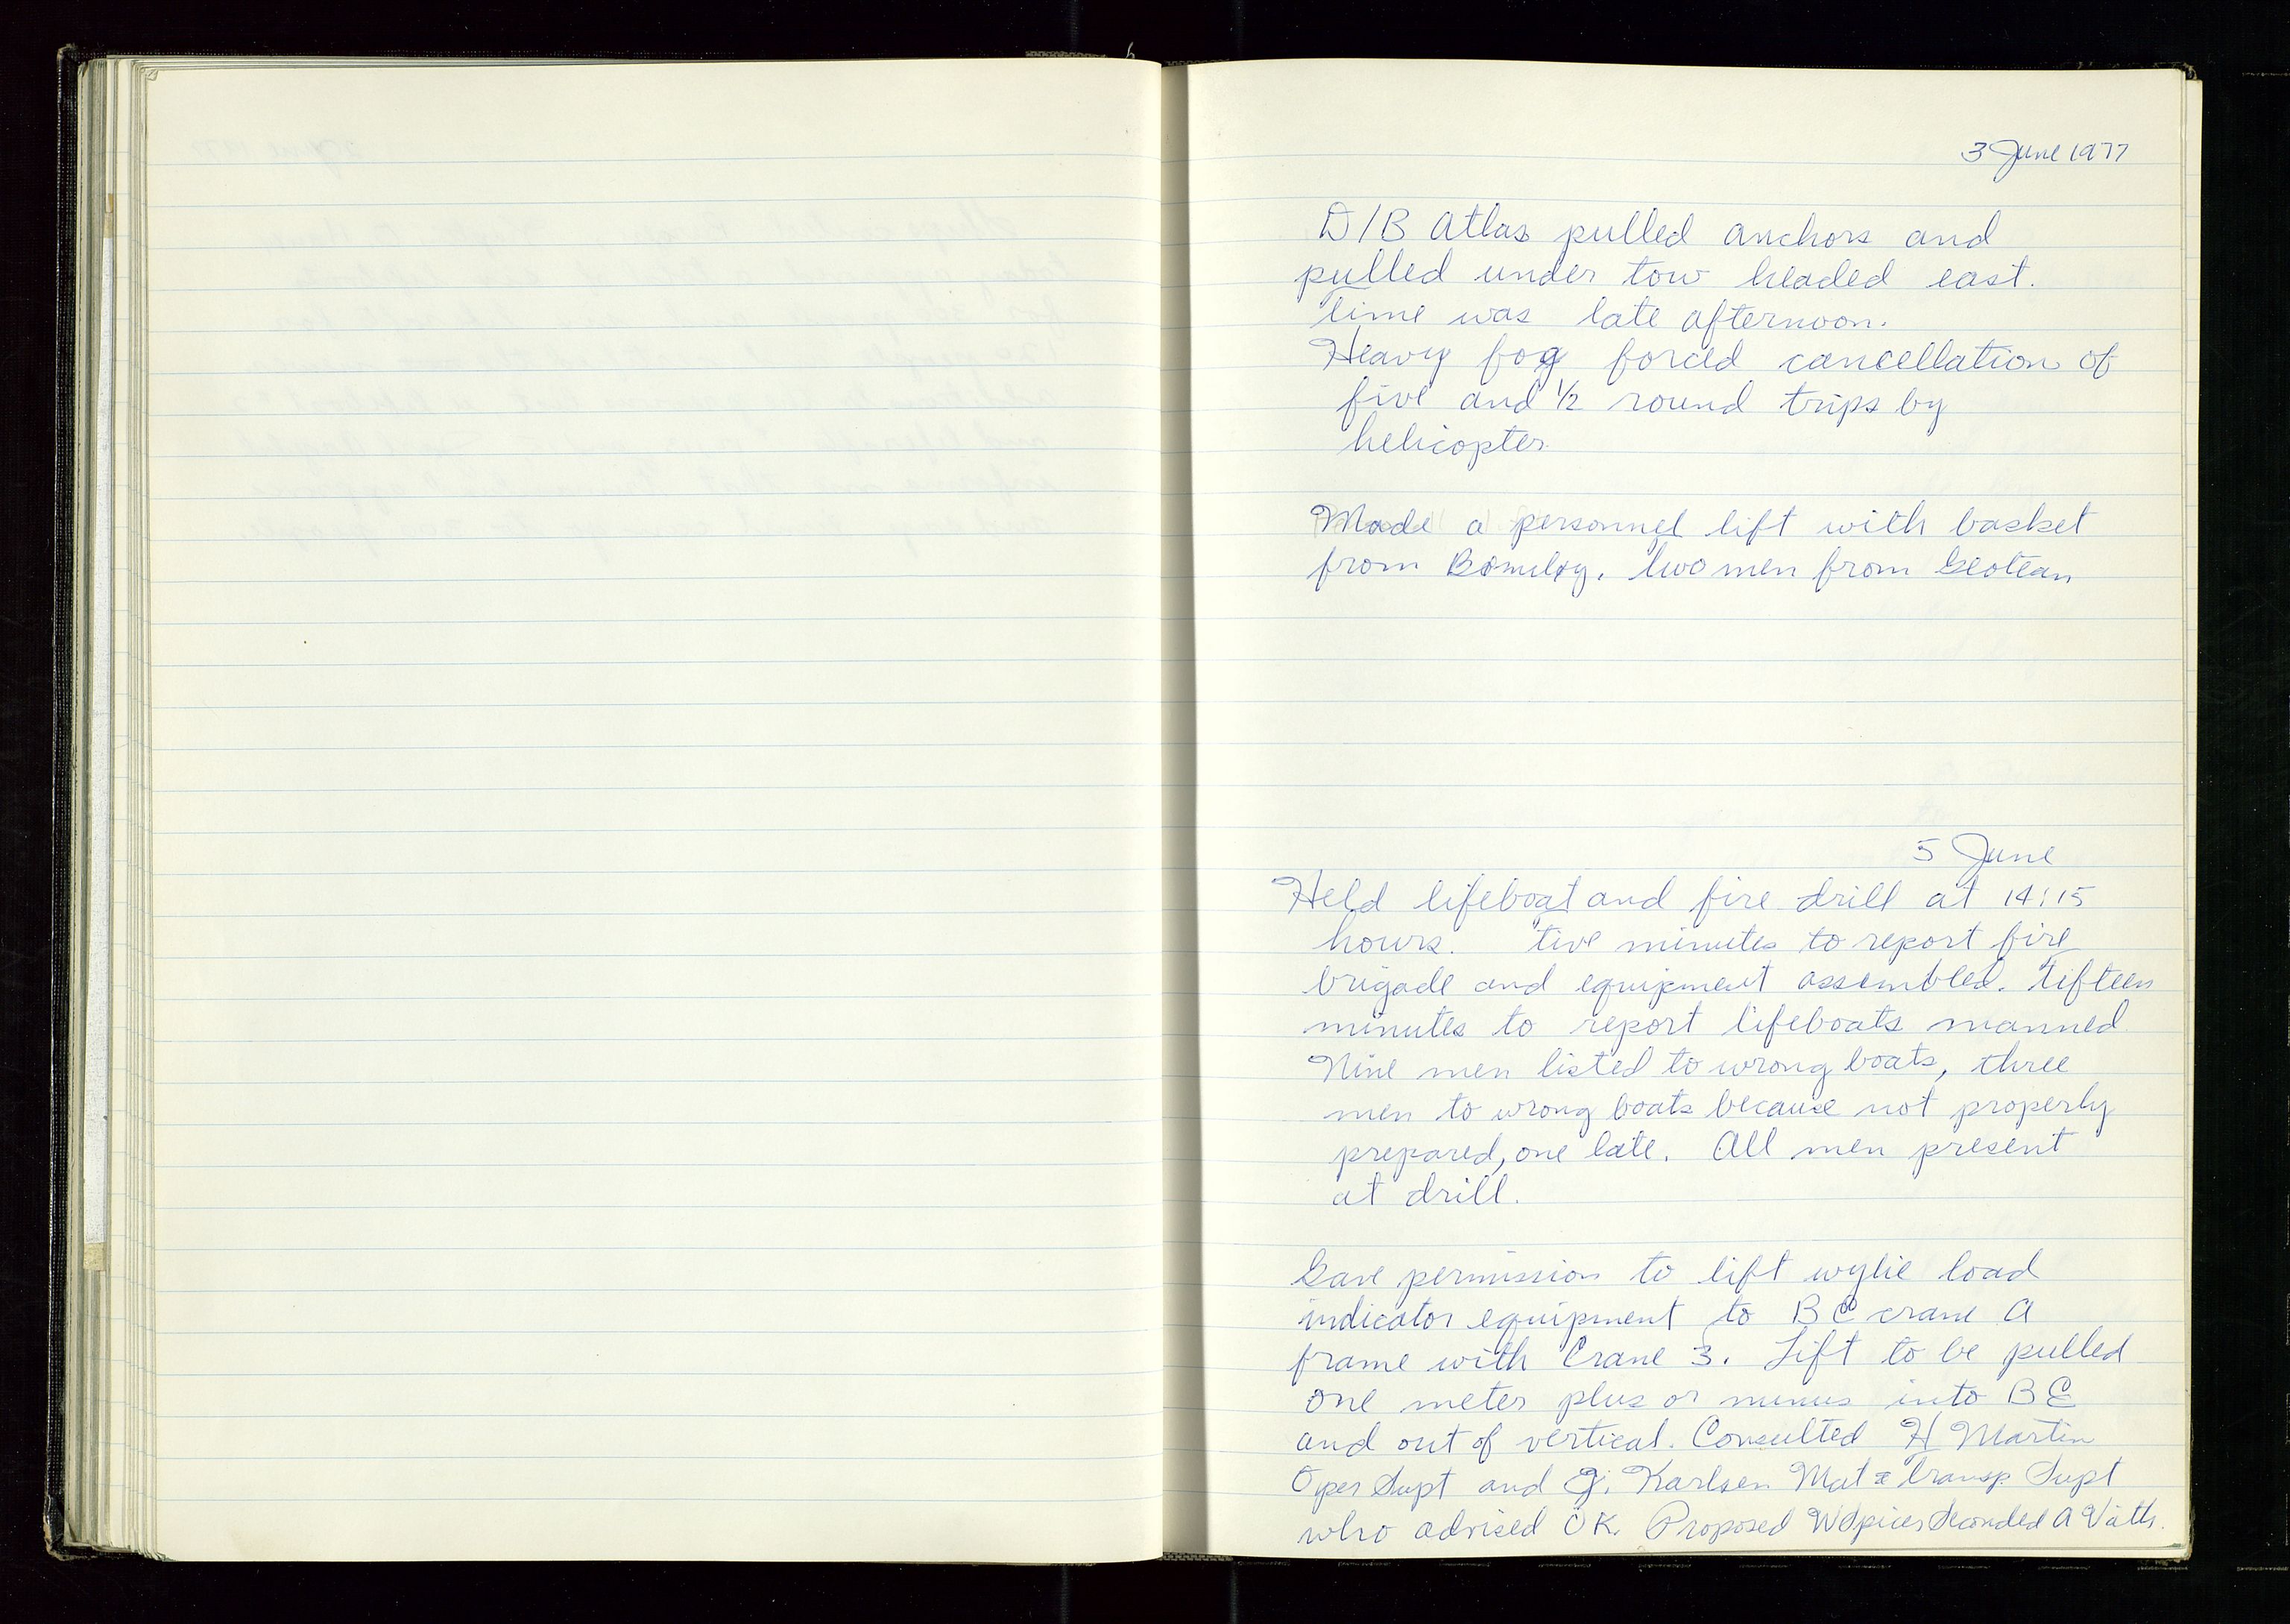 3 June 1977
D/B Atlas pulled anchors and
pulled under tow headed east.
Time was late afternoon.
Heavy fog forced cancellation of
five and 1/2 round trips by
helicopter.
Made a personnel lift with basket
from Bomiloy. Two men from Geoteam
5 June
Held lifeboat and fire drill at 14:15
hours. Five minutes to report fire
brigade and equipment assembled. Fifteen
minutes to report lifeboats manned
Nine men listed to wrong boats, three
men to wrong boats because not properly
prepared, one late. All men present
at drill.
Gave permission to lift wylie load
indicator equipment to BE crane A
frame with Crane 3. Lift to be pulled
one meter plus or minus into BE
and out of vertical. Consulted H Martin
Oper Supt and J. Karlsen Mat & Transp. Supt
who advised OK. Proposed W Spicer Seconded A